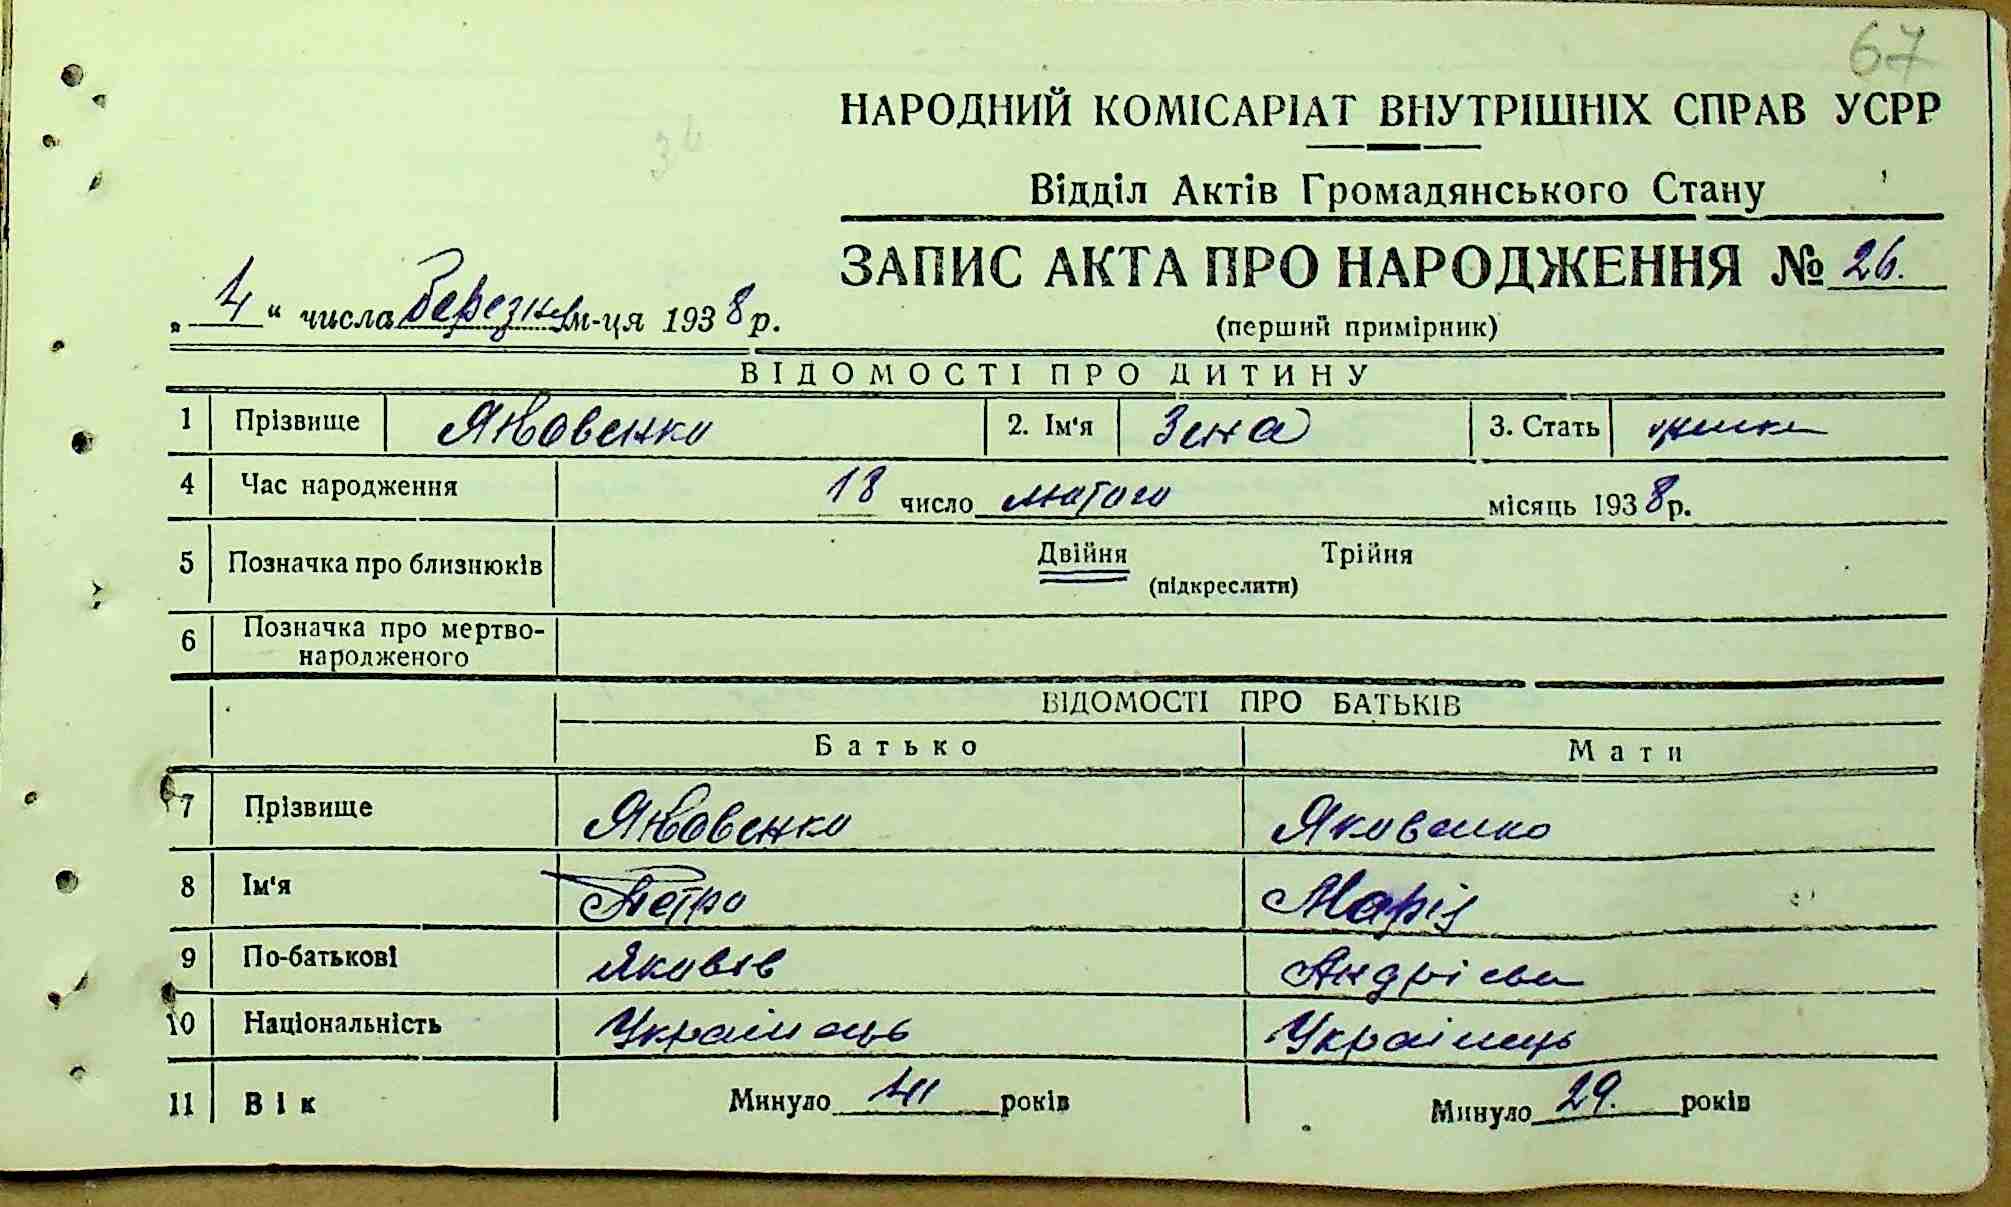 67
НАРОДНИЙ КОМІСАРІАТ ВНУТРІШНІХ СПРАВ УСРР
Відділ Актів Громадянського Стану
ЗАПИС АКТА ПРО НАРОДЖЕННЯ № 26.
„ 4 “ числа березня м-ця 1938 р.
(перший примірник)
ВІДОМОСТІ ПРО ДИТИНУ
1 Прізвище Яковенко 2. Ім'я Зена 3. Стать
4 Час народження 18 число лютого місяць 1938 р.
5 Позначка про близнюків Двійня Трійня
(підкреслити)
6 Позначка про мертво-
народженого
ВІДОМОСТІ ПРО БАТЬКІВ
Батько Мати
7 Прізвище Яковенко Яковенко
8 Ім'я Петро Марія
9 По-батькові Яковів Андрієва
10 Національність Українець Українець
11 Вік Минуло 41 років Минуло 29. років